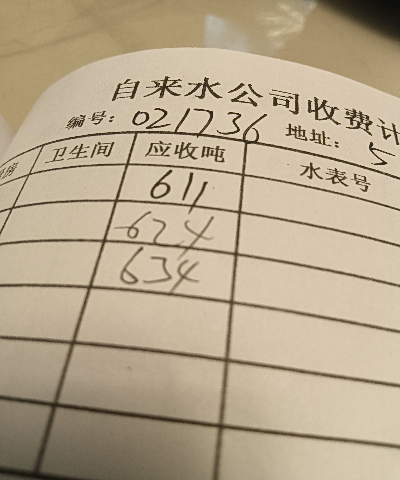 自来水公司收费计
编号：021736 地址：5
房 卫生间 应收吨 水表号
611
624
634